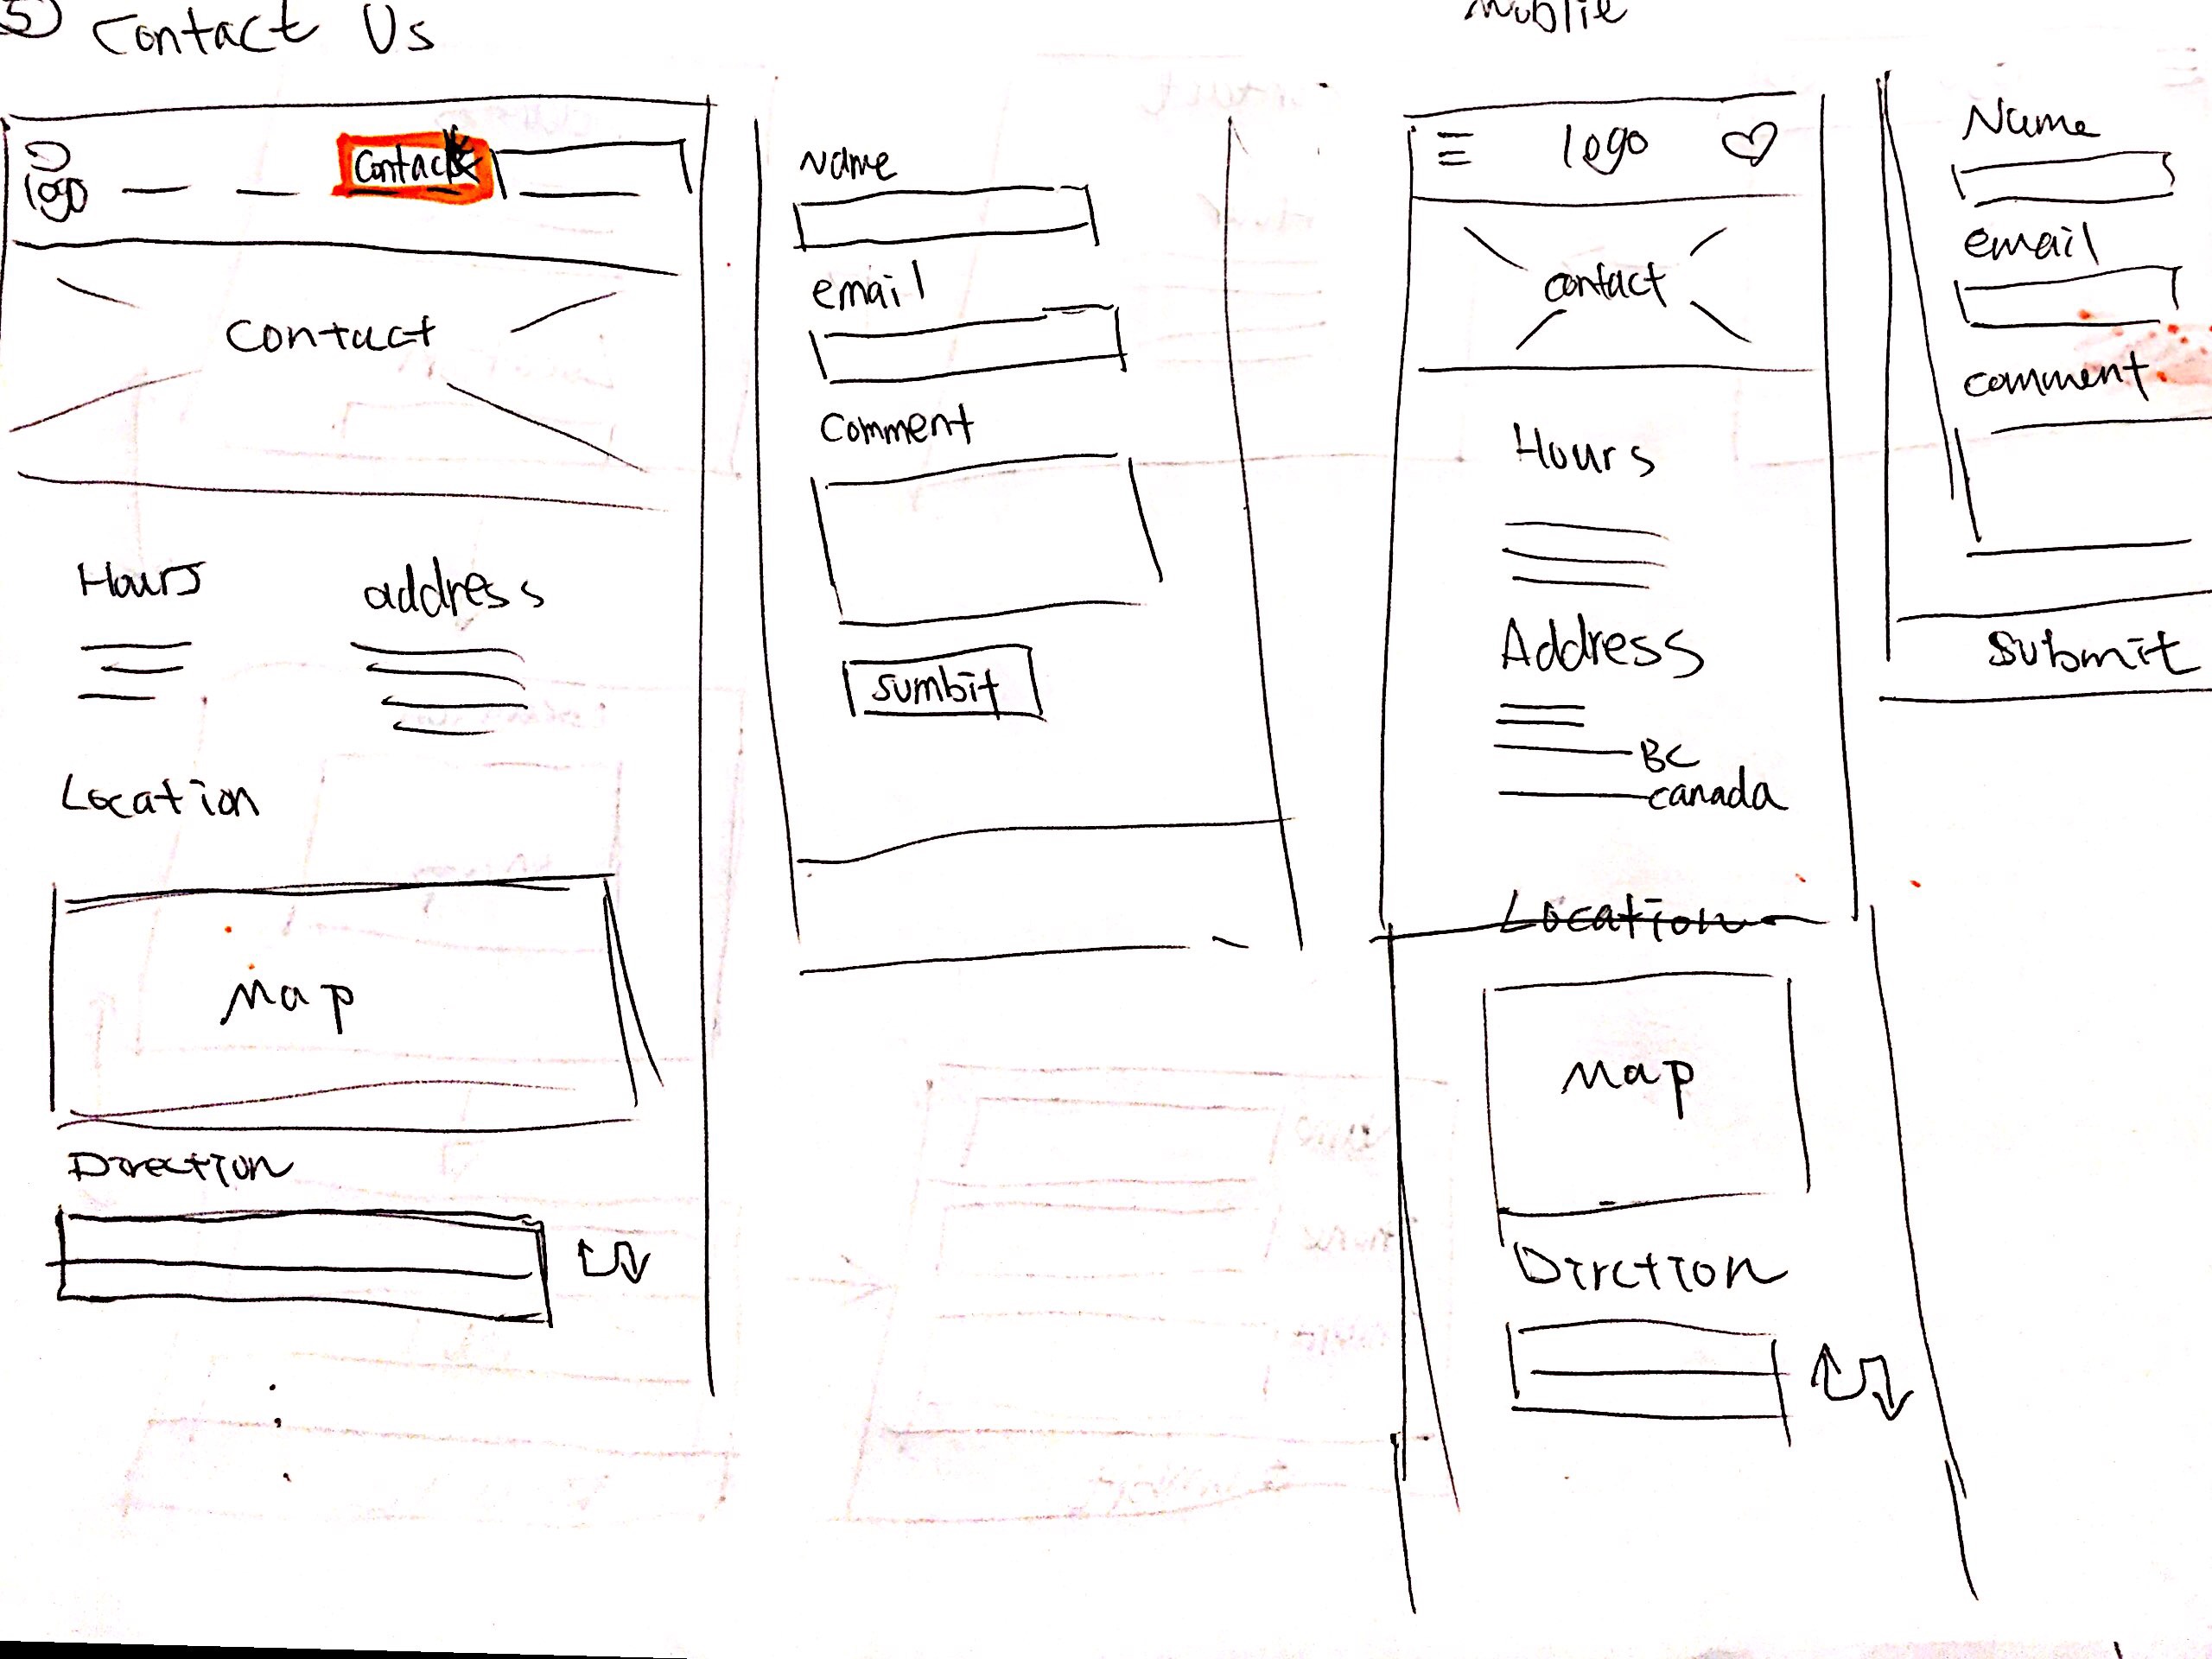 5 Contact Us
logo
Contact
Contact
Hours
address
Location
Map
Direction
Name
email
Comment
sumbit
Moblie
logo
contact
Hours
Address
BC
canada
Location
Map
Dirction
Name
email
comment
Submit